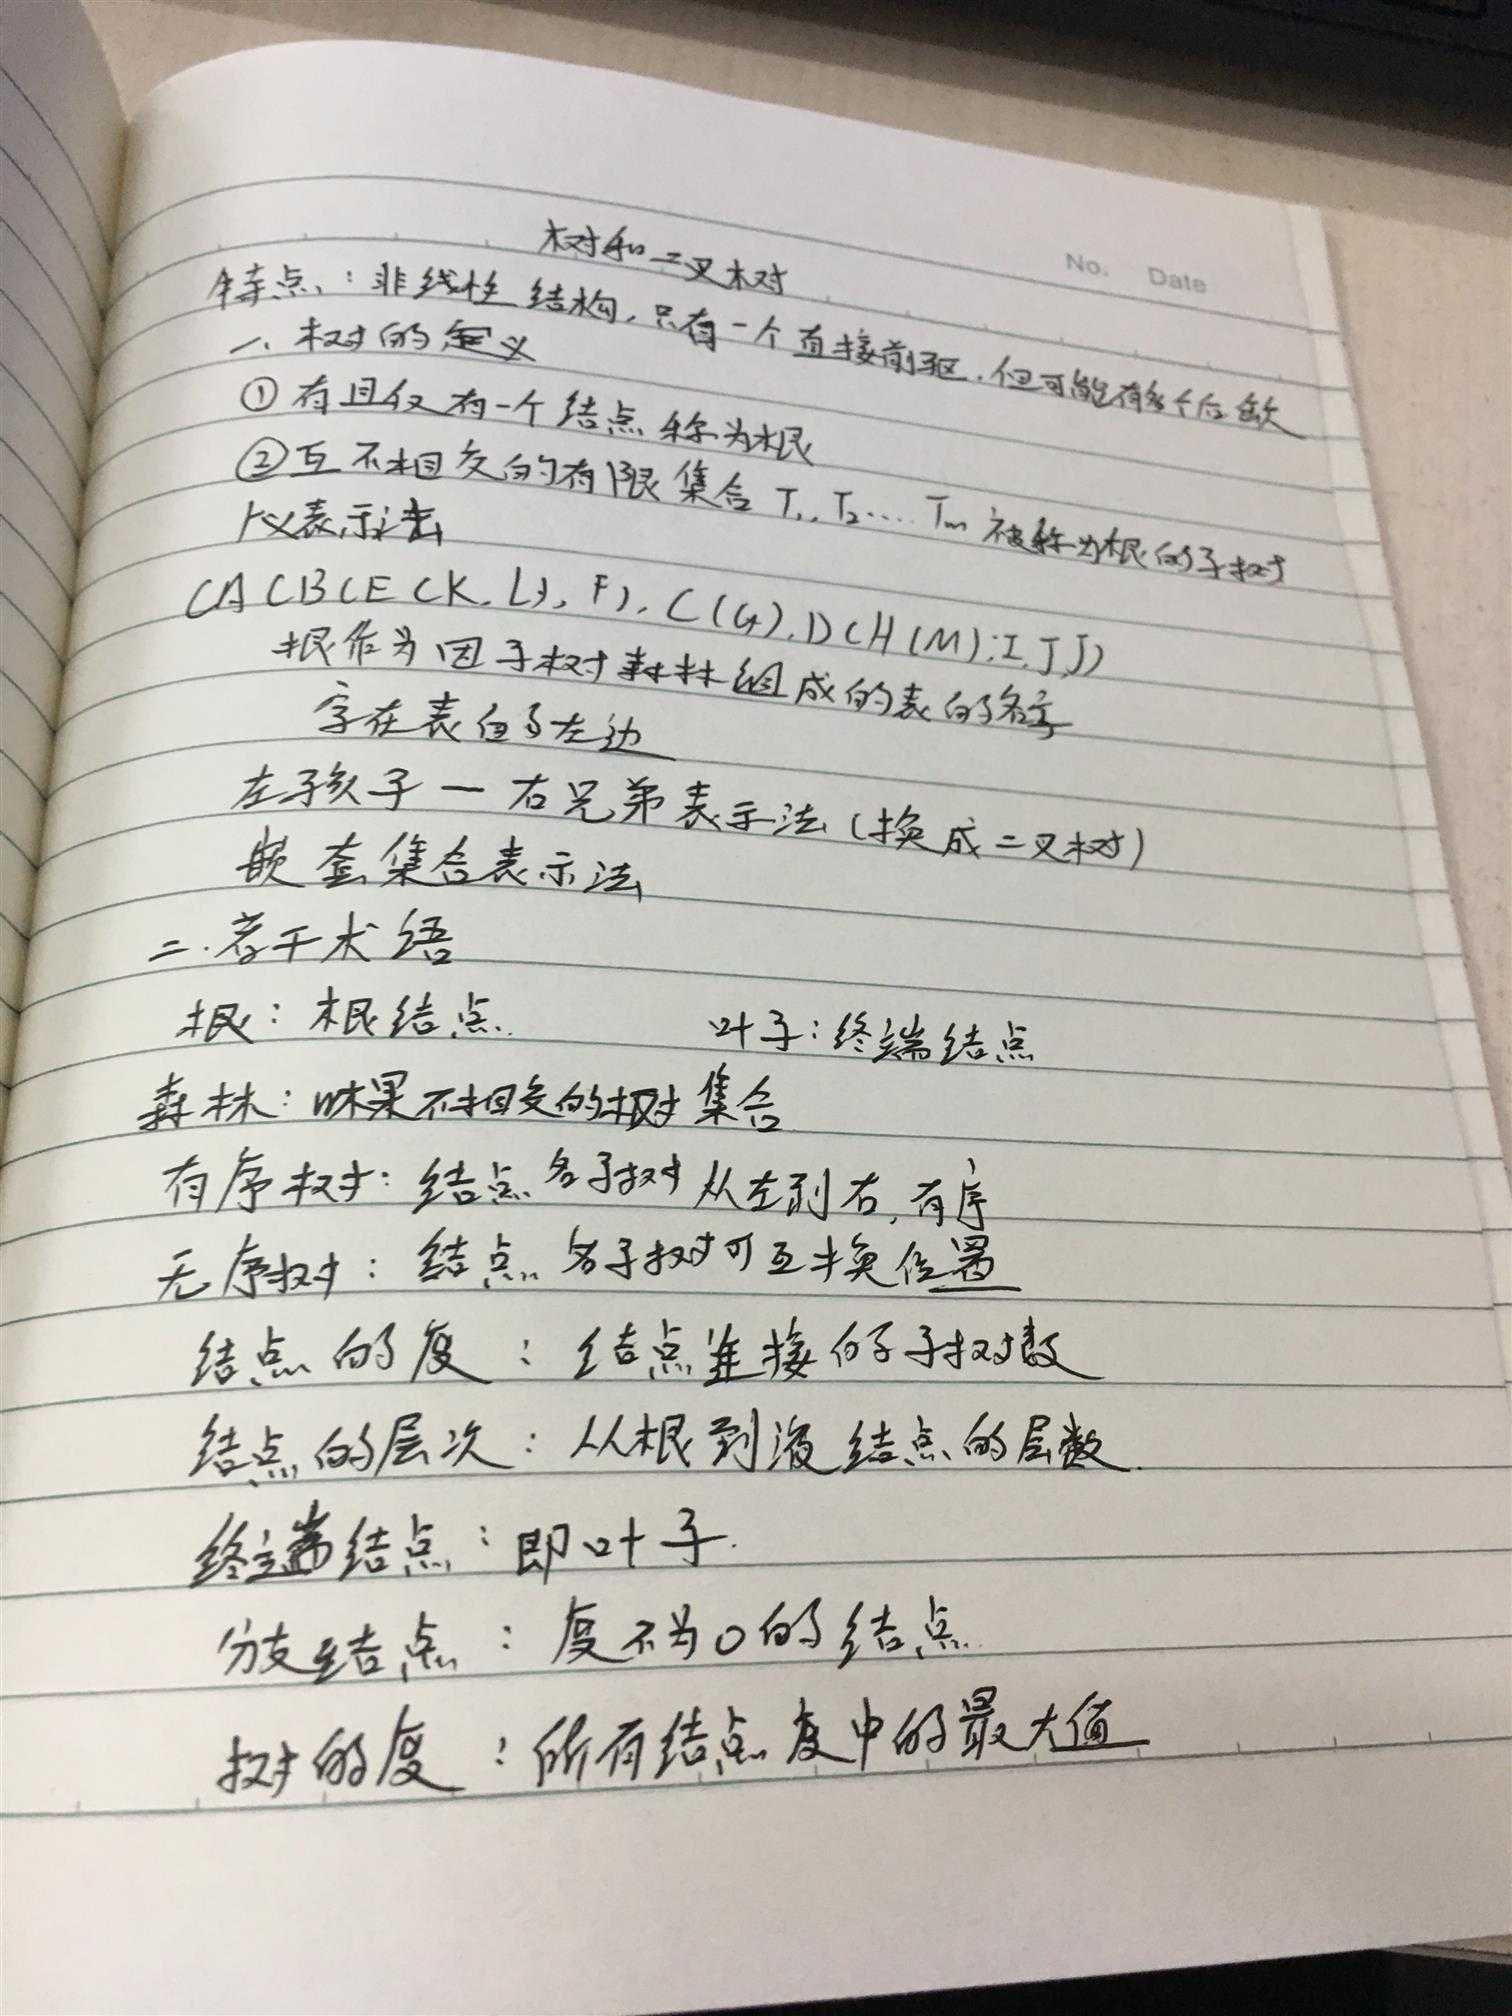 No. Date
树和二叉树
特点：非线性结构，只有一个直接前驱，但可能有多个后继
一、树的定义
①有且仅有一个结点称为根
②互不相交的有限集合 T₁, T₂.... Tm 被称为根的子树
广义表示法
(A (B(E (K, L), F), C(G), D(H(M), I, J))
根作为因子树森林组成的表的名字
字在表的左边
左孩子一右兄弟表示法(换成二叉树)
嵌套集合表示法
二.若干术语
根：根结点 叶子：终端结点
森林：m棵不相交的树集合
有序树：结点各子树从左到右,有序
无序树：结点各子树可互换位置
结点的度：结点连接的子树数
结点的层次：从根到该结点的层数
终端结点：即叶子.
分支结点：度不为0的结点
树的度：所有结点度中的最大值